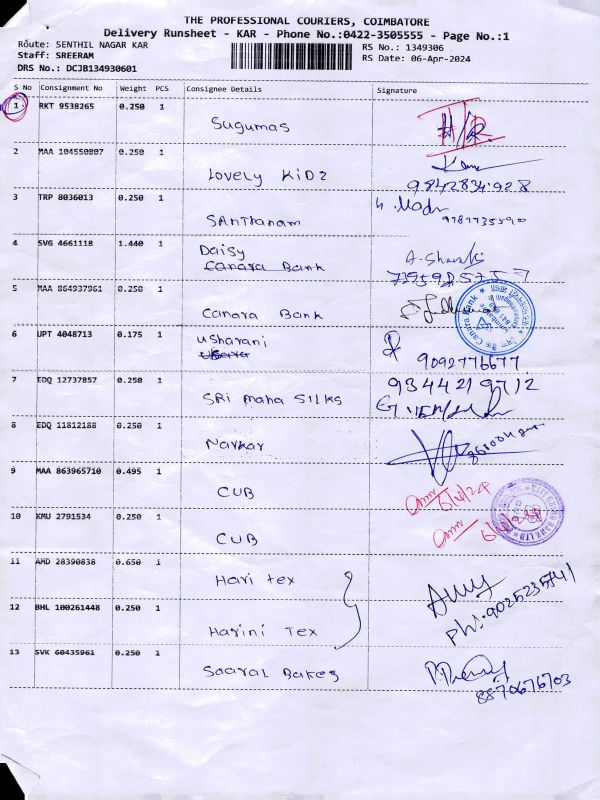 THE PROFESSIONAL COURIERS, COIMBATORE
Delivery Runsheet - KAR - Phone No.:0422-3505555 - Page No.:1
Route: SENTHIL NAGAR KAR
RS No.: 1349306
Staff: SREERAM
RS Date: 06-Apr-2024
DRS No.: DCJB134930601
S No Consignment No Weight PCS Consignee Details Signature
1 RKT 9538265 0.250 1
Sugumas
2 MAA 104550807 0.250 1
Lovely KiDz
9842834928
3 TRP 8036013 0.250 1
Santhanam
9787735590
4 SVG 4661118 1.440 1
Daisy
Canara Bank
5 MAA 864937961 0.250 1
Canara Bank
6 UPT 4048713 0.175 1
Usharani
9092776677
7 EDQ 12737857 0.250 1
9344219712
SRi maha SilKs
8 EDQ 11812188 0.250 1
Navkar
9 MAA 863965710 0.495 1
CUB
6/4/24
10 KMU 2791534 0.250 1
CUB
6/4/24
11 AMD 28390838 0.650 1
Hari tex
12 BHL 100261448 0.250 1
Harini Tex
Ph:9025235741
13 SVK 60435961 0.250 1
Saaral Bakes
8870676703